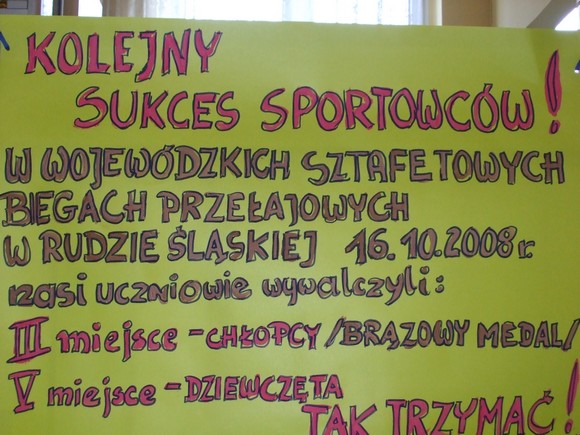 KOLEJNY
SUKCES SPORTOWCÓW!
W WOJEWÓDZKICH SZTAFETOWYCH
BIEGACH PRZEŁAJOWYCH
W RUDZIE ŚLĄSKIEJ 16.10.2008r.
nasi uczniowie wywalczyli:
III miejsce - CHŁOPCY /BRĄZOWY MEDAL/
V miejsce - DZIEWCZĘTA
TAK TRZYMAĆ!